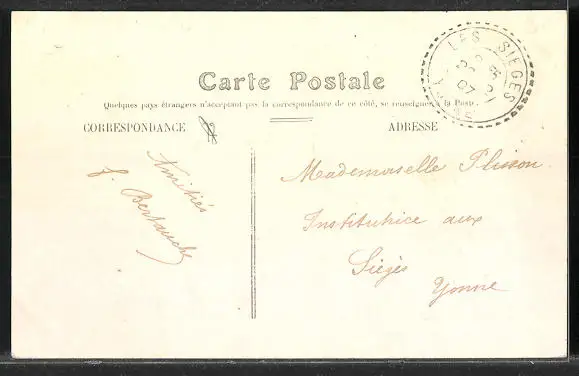 Carte Postale
Quelques pays étrangers n'acceptant pas la correspondance de ce côté, se renseigner à la Poste.
CORRESPONDANCE
ADRESSE
Amitiés
Mademoiselle Plisson
Institutrice aux
Sièges
Yonne
LES SIEGES
07